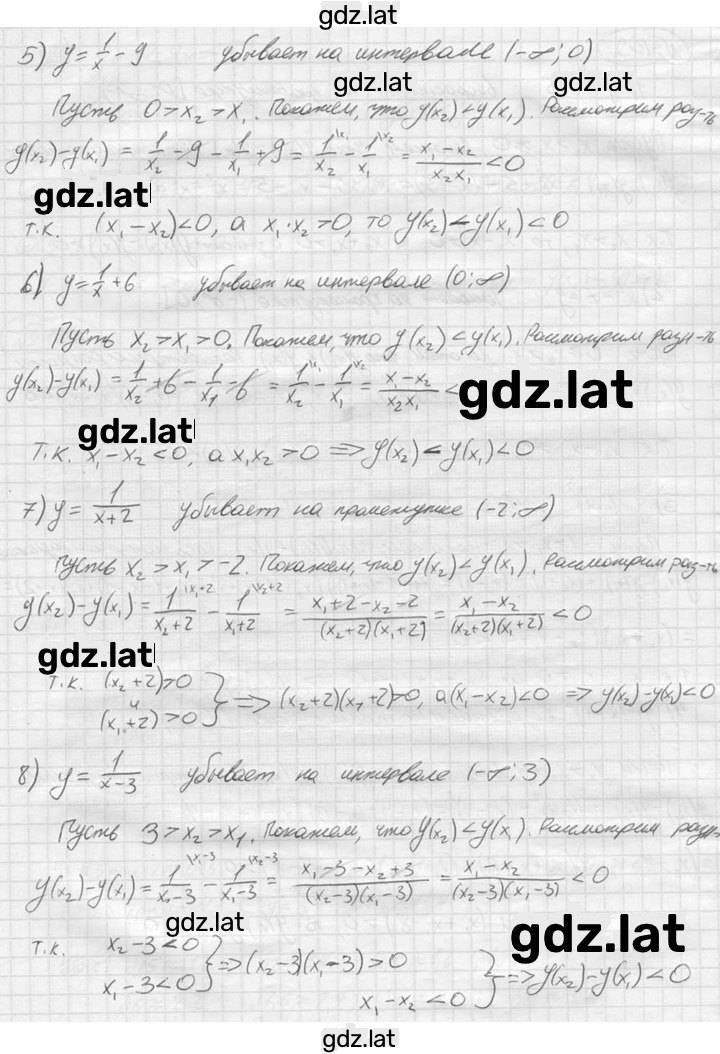 gdz.lat
5) y=1/x - 9 убывает на интервале (-∞; 0)
gdz.lat gdz.lat
Пусть 0>x₂>x₁. Покажем, что y(x₂)<y(x₁). Рассмотрим раз-ть
y(x₂)-y(x₁) = 1/x₂ - 9 - 1/x₁ + 9 = 1/x₂ \x₁ - 1/x₁ \x₂ = (x₁-x₂)/(x₂x₁) < 0
gdz.lat
т.к. (x₁-x₂)<0, а x₁·x₂>0, то y(x₂)<y(x₁)<0
6) y=1/x+6 убывает на интервале (0;∞)
Пусть x₂>x₁>0. Покажем, что y(x₂)<y(x₁). Рассмотрим разн-ть
y(x₂)-y(x₁) = 1/x₂+6 - 1/x₁ - 6 = 1/x₂ \x₁ - 1/x₁ \x₂ = (x₁-x₂)/(x₂x₁) <
gdz.lat
gdz.lat
т.к. x₁-x₂<0, а x₁x₂>0 ⇒ y(x₂)<y(x₁)<0
7) y= 1/(x+2) убывает на промежутке (-2;∞)
Пусть x₂>x₁>-2. Покажем, что y(x₂)<y(x₁). Рассмотрим раз-ть
y(x₂)-y(x₁) = 1/(x₂+2) \x₁+2 - 1/(x₁+2) \x₂+2 = (x₁+2-x₂-2)/((x₂+2)(x₁+2)) = (x₁-x₂)/((x₂+2)(x₁+2)) < 0
gdz.lat
т.к. (x₂+2)>0 и (x₁+2)>0 } ⇒ (x₂+2)(x₁+2)>0, а (x₁-x₂)<0 ⇒ y(x₂)-y(x₁)<0
8) y= 1/(x-3) убывает на интервале (-∞; 3)
Пусть 3>x₂>x₁. Покажем, что y(x₂)<y(x₁). Рассмотрим
y(x₂)-y(x₁) = 1/(x₂-3) \x₁-3 - 1/(x₁-3) \x₂-3 = (x₁-3-x₂+3)/((x₂-3)(x₁-3)) = (x₁-x₂)/((x₂-3)(x₁-3)) < 0
gdz.lat
gdz.lat
т.к. x₂-3<0 x₁-3<0 } ⇒ (x₂-3)(x₁-3)>0 x₁-x₂<0 } ⇒ y(x₂)-y(x₁)<0
gdz.lat